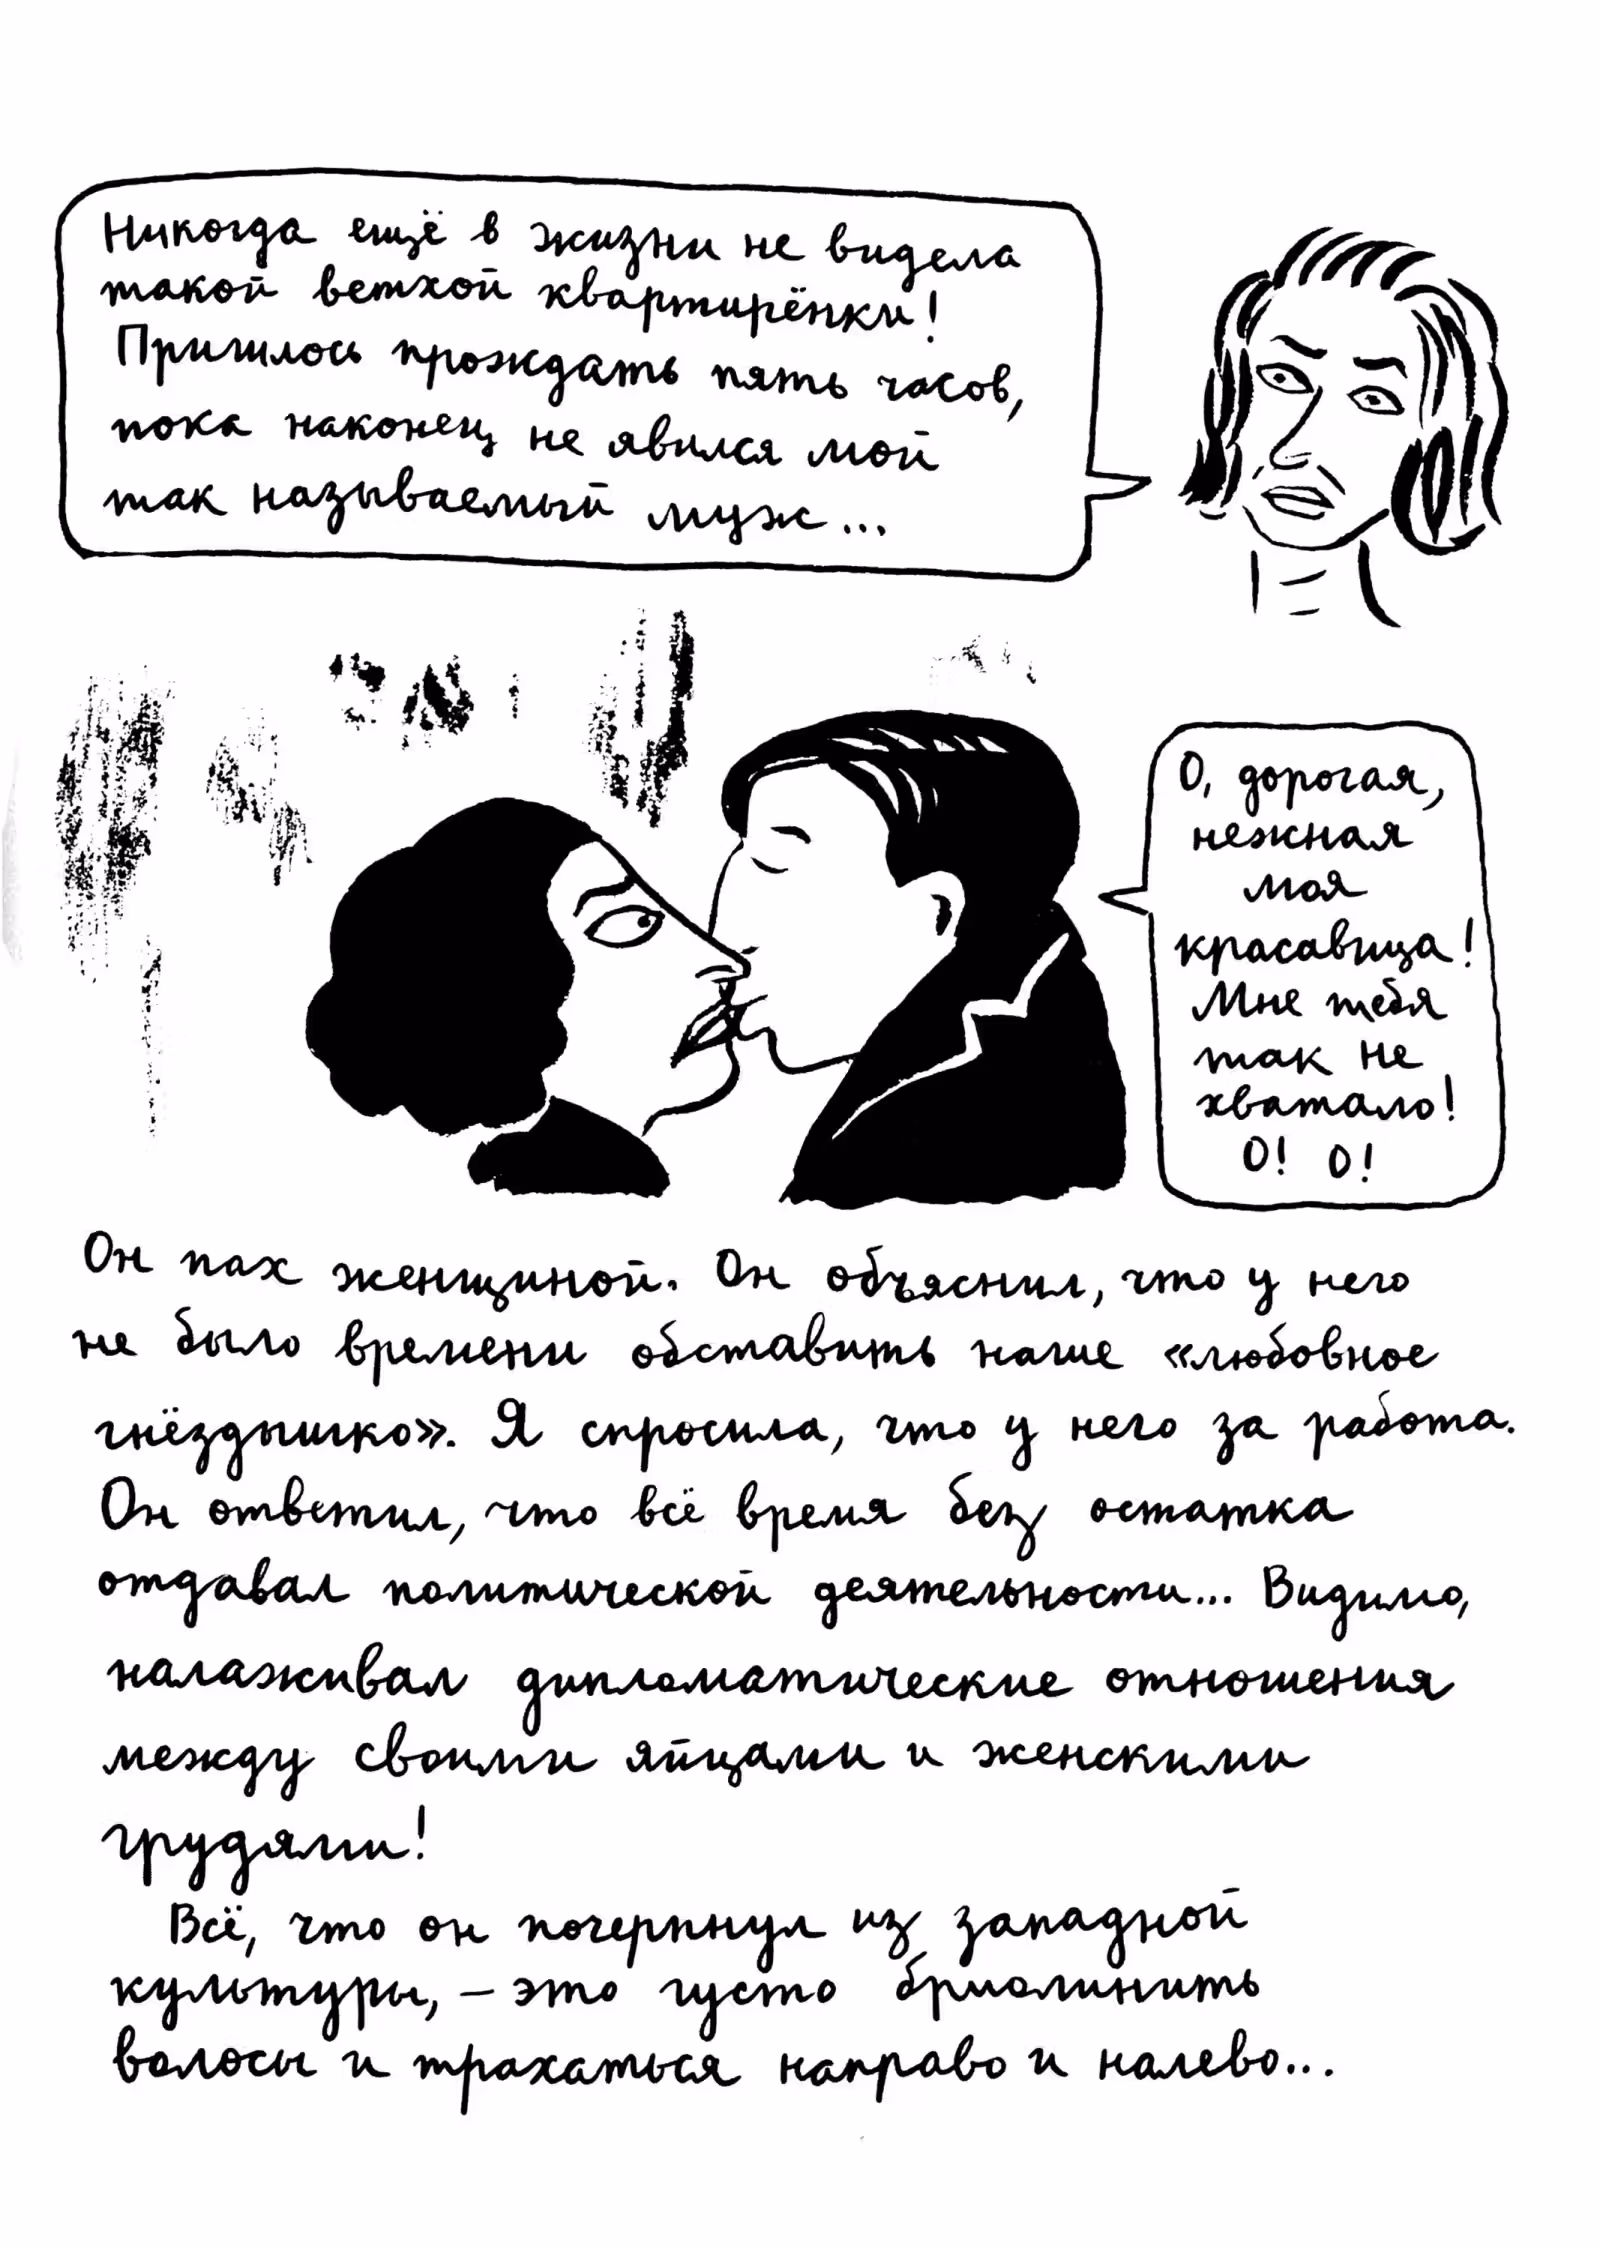 Никогда ещё в жизни не видела
такой ветхой квартирёнки!
Пришлось прождать пять часов,
пока наконец не явился мой
так называемый муж...
О, дорогая,
нежная
моя
красавица!
Мне тебя
так не
хватало!
О! О!
Он пах женщиной. Он объяснил, что у него
не было времени обставить наше «любовное
гнёздышко». Я спросила, что у него за работа.
Он ответил, что всё время без остатка
отдавал политической деятельности... Видимо,
налаживал дипломатические отношения
между своими яйцами и женскими
грудями!
Всё, что он почерпнул из западной
культуры, – это густо бриолинить
волосы и трахаться направо и налево...